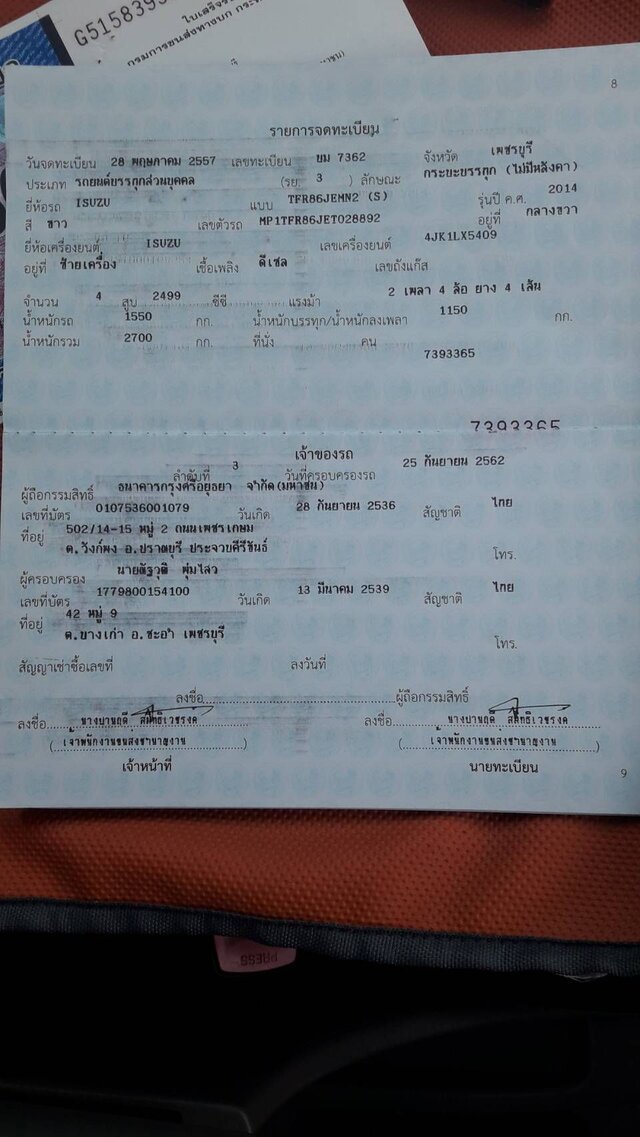 G5158395
ใบเสร็จรั
กรมการขนส่งทางบก กระ
8
รายการจดทะเบียน
วันจดทะเบียน 28 พฤษภาคม 2557 เลขทะเบียน บม 7362 จังหวัด เพชรบุรี
ประเภท รถยนต์บรรทุกส่วนบุคคล (รย. 3 ) ลักษณะ กระบะบรรทุก (ไม่มีหลังคา)
ยี่ห้อรถ ISUZU แบบ TFR86JEMN2 (S) รุ่นปี ค.ศ. 2014
สี ขาว เลขตัวรถ MP1TFR86JET028892 อยู่ที่ กลางขวา
ยี่ห้อเครื่องยนต์ ISUZU เลขเครื่องยนต์ 4JK1LX5409
อยู่ที่ ซ้ายเครื่อง เชื้อเพลิง ดีเซล เลขถังแก๊ส
จำนวน 4 สูบ 2499 ซีซี แรงม้า 2 เพลา 4 ล้อ ยาง 4 เส้น
น้ำหนักรถ 1550 กก. น้ำหนักบรรทุก/น้ำหนักลงเพลา 1150 กก.
น้ำหนักรวม 2700 กก. ที่นั่ง คน
7393365
7393365
เจ้าของรถ
ลำดับที่ 3 วันที่ครอบครองรถ 25 กันยายน 2562
ผู้ถือกรรมสิทธิ์ ธนาคารกรุงศรีอยุธยา จำกัด(มหาชน)
เลขที่บัตร 0107536001079 วันเกิด 28 กันยายน 2536 สัญชาติ ไทย
ที่อยู่ 502/14-15 หมู่ 2 ถนนเพชรเกษม
ต.วังก์พง อ.ปราณบุรี ประจวบคีรีขันธ์ โทร.
ผู้ครอบครอง นายณัฐวุฒิ พุ่มไสว
เลขที่บัตร 1779800154100 วันเกิด 13 มีนาคม 2539 สัญชาติ ไทย
ที่อยู่ 42 หมู่ 9
ต.บางเก่า อ.ชะอำ เพชรบุรี โทร.
สัญญาเช่าซื้อเลขที่ ลงวันที่
ลงชื่อ ผู้ถือกรรมสิทธิ์
ลงชื่อ ลงชื่อ
(เจ้าพนักงานขนส่งชำนาญงาน) (เจ้าพนักงานขนส่งชำนาญงาน)
เจ้าหน้าที่ นายทะเบียน
9
PRESS